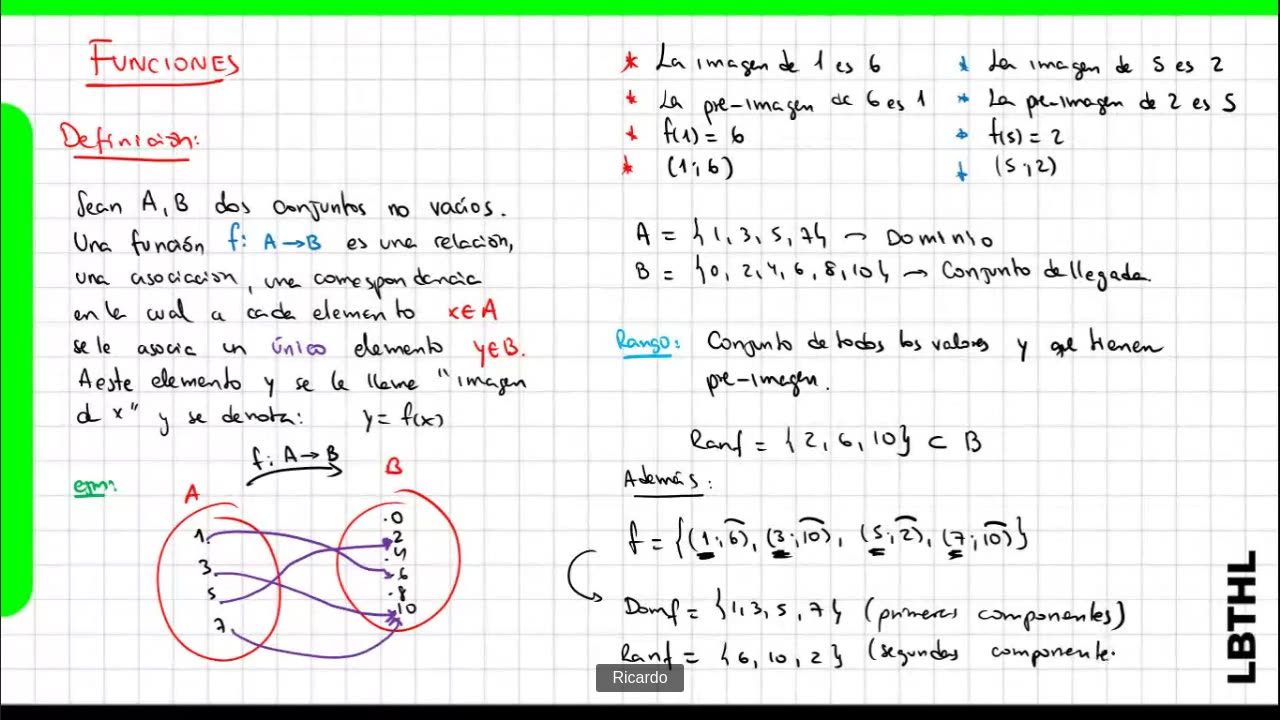 FUNCIONES
Definición:
Sean A, B dos conjuntos no vacíos.
Una función f: A→B es una relación,
una asociación, una correspondencia
en la cual a cada elemento x∈A
se le asocia un único elemento y∈B.
A este elemento y se le llama "imagen
d x" y se denota: y = f(x)
ejm:
f: A→B
A
B
1
3
5
7
.0
.2
.4
.6
.8
.10
* La imagen de 1 es 6
* La pre-imagen de 6 es 1
* f(1) = 6
* (1;6)
* La imagen de 5 es 2
* La pre-imagen de 2 es 5
* f(5) = 2
* (5;2)
A = {1, 3, 5, 7} → Dominio
B = {0, 2, 4, 6, 8, 10} → Conjunto de llegada
Rango: Conjunto de todos los valores y que tienen
pre-imagen.
Ranf = {2, 6, 10} ⊂ B
Además:
f = {(1;6), (3;10), (5;2), (7;10)}
Domf = {1, 3, 5, 7} (primeras componentes)
Ranf = {6, 10, 2} (segundas componente.
Ricardo
LBTHL